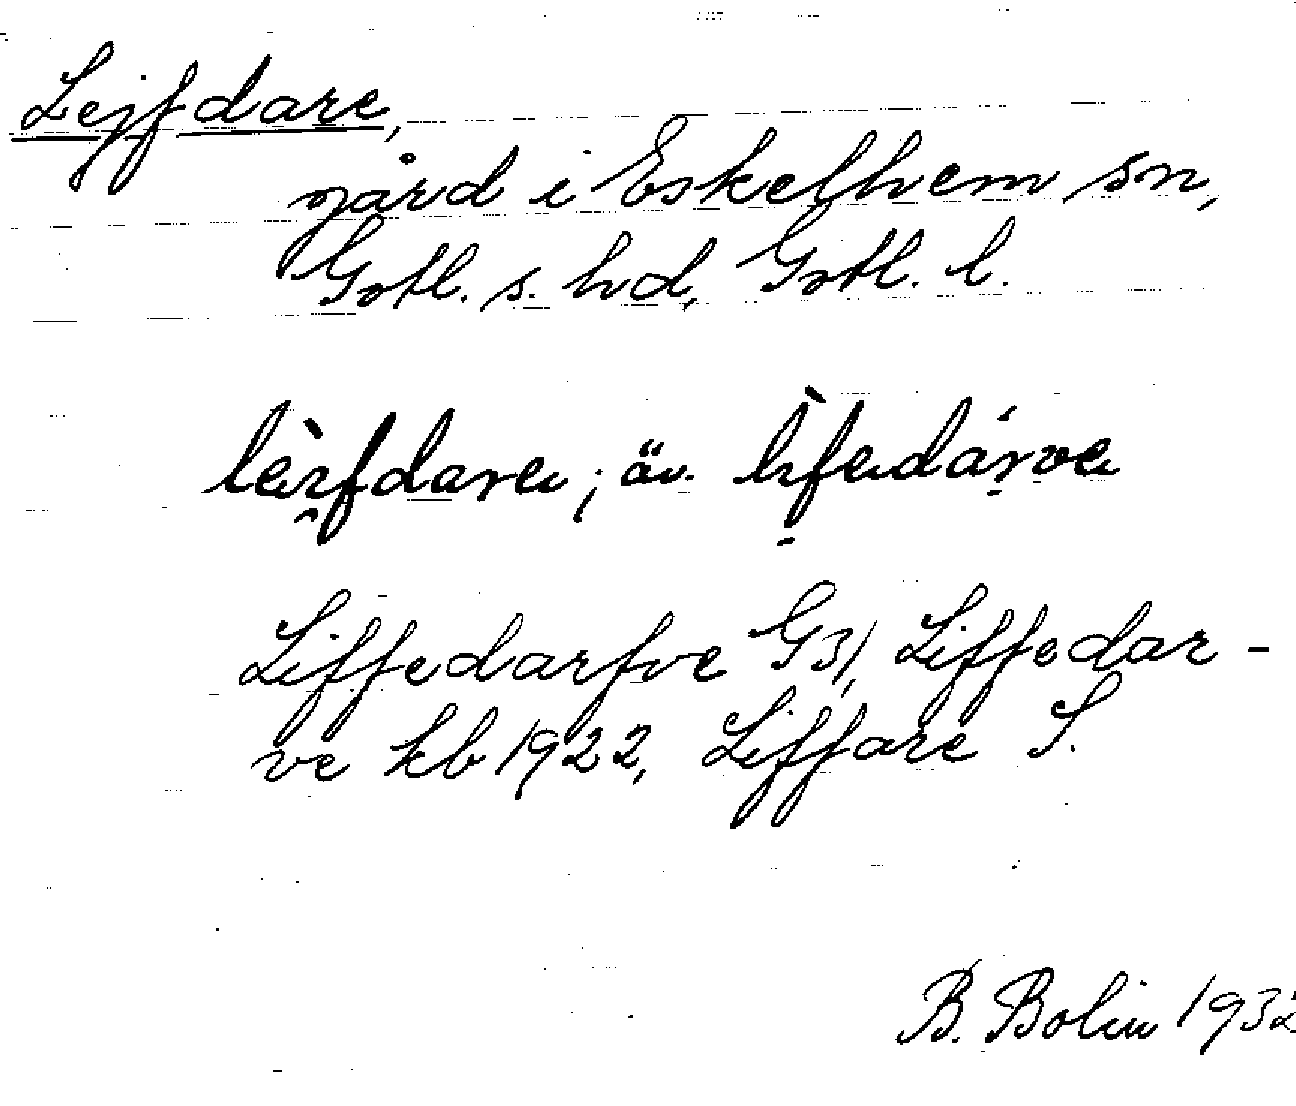 Lejfdare,
gård i Eskelhem sn,
Gotl. s. hd, Gotl. l.
lèi̯fdare; äv. lìfedárve
Liffedarfve G31, Liffedar-
ve kb 1922, Liffare S.
B. Bolin 1932